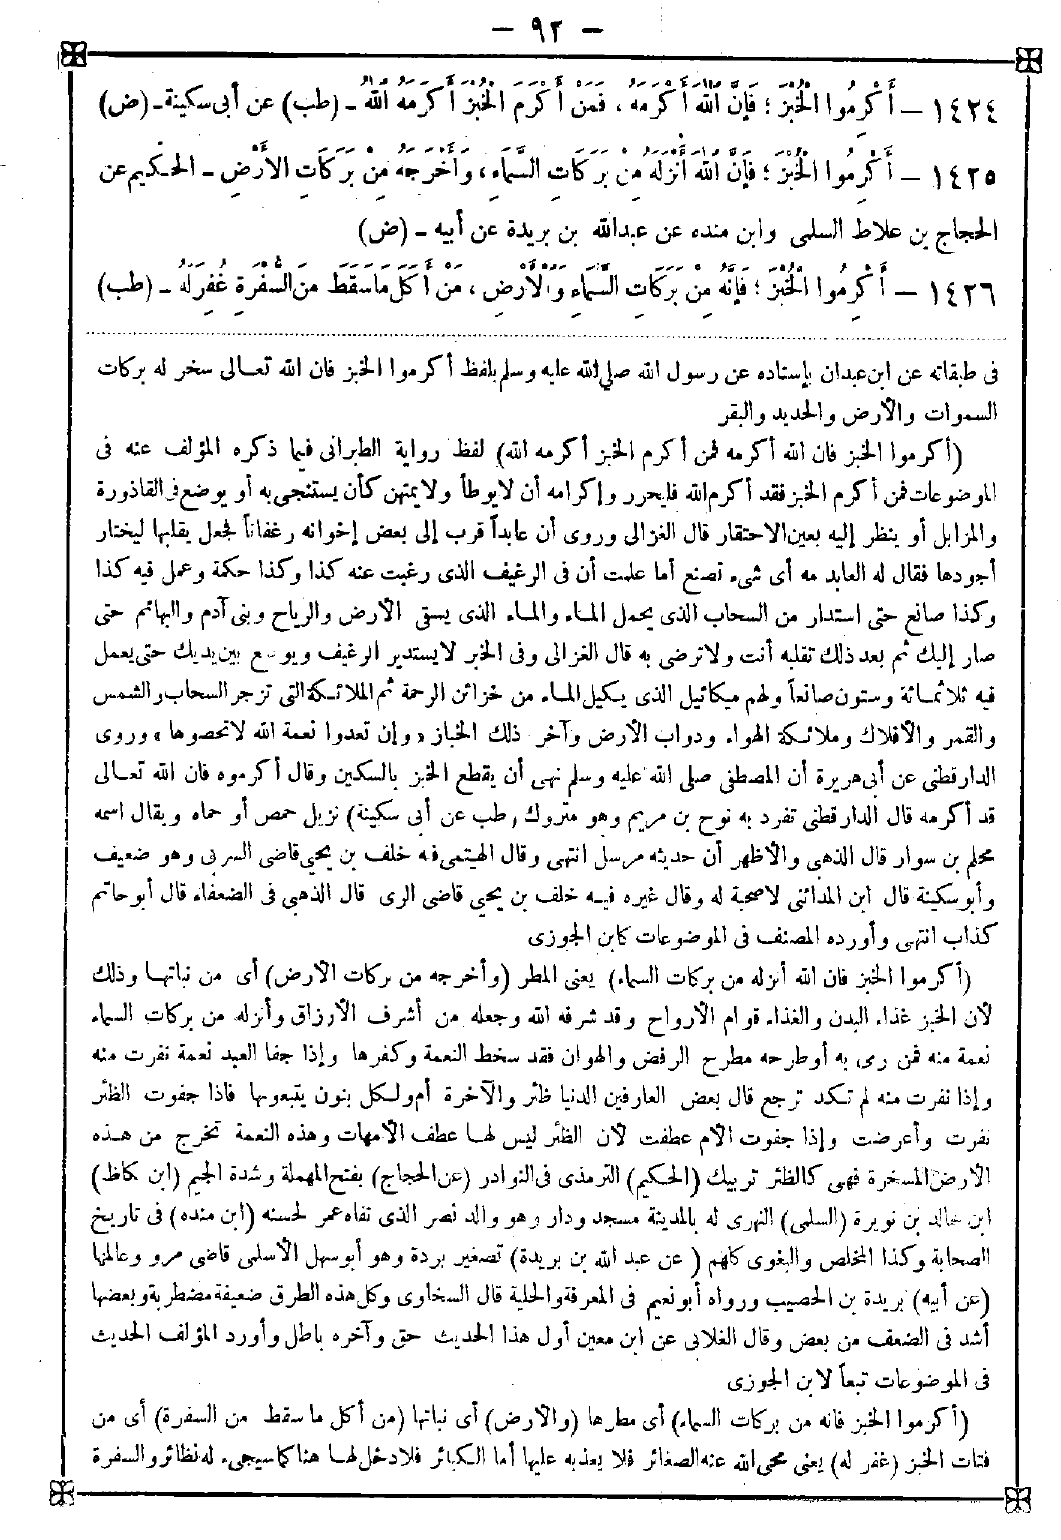 – ٩٢ –
١٤٢٤ – أَكْرِمُوا الْخُبْزَ ؛ فَإِنَّ اللهَ أَكْرَمَهُ ، فَمَنْ أَكْرَمَ الْخُبْزَ أَكْرَمَهُ اللهُ – (طب) عن أبى سكينة – (ض)
١٤٢٥ – أَكْرِمُوا الْخُبْزَ ؛ فَإِنَّ اللهَ أَنْزَلَهُ مِنْ بَرَكَاتِ السَّمَاءِ ، وَأَخْرَجَهُ مِنْ بَرَكَاتِ الأَرْضِ – الحكيم عن
الحجاج بن علاط السلمى وابن منده عن عبدالله بن بريدة عن أبيه – (ض)
١٤٢٦ – أَكْرِمُوا الْخُبْزَ ؛ فَإِنَّهُ مِنْ بَرَكَاتِ السَّمَاءِ وَالْأَرْضِ ، مَنْ أَكَلَ مَا سَقَطَ مِنَ السُّفْرَةِ غُفِرَ لَهُ – (طب)
فى طبقاته عن ابن عبدان بإسناده عن رسول الله صلى الله عليه وسلم بلفظ أكرموا الخبز فان الله تعالى سخر له بركات
السموات والأرض والحديد والبقر
(أكرموا الخبز فان الله أكرمه فمن أكرم الخبز أكرمه الله) لفظ رواية الطبرانى فيما ذكره المؤلف عنه فى
الموضوعات فمن أكرم الخبز فقد أكرم الله فليحرر وإكرامه أن لايوطأ ولايمتهن كأن يستنجى به أو يوضع فى القاذورة
والمزابل أو ينظر إليه بعين الاحتقار قال الغزالى وروى أن عابداً قرب إلى بعض إخوانه رغفاناً فجعل يقلبها ليختار
أجودها فقال له العابد مه أى شىء تصنع أما علمت أن فى الرغيف الذى رغبت عنه كذا وكذا حكمة وعمل فيه كذا
وكذا صانع حتى استدار من السحاب الذى يحمل الماء والماء الذى يسقى الأرض والرياح وبنى آدم والبهائم حتى
صار إليك ثم بعد ذلك تقلبه أنت ولاترضى به قال الغزالى وفى الخبر لايستدير الرغيف ويوضع بين يديك حتى يعمل
فيه ثلاثمائة وستون صانعاً ولهم ميكائيل الذى يكيل الماء من خزائن الرحمة ثم الملائكة التى تزجر السحاب والشمس
والقمر والأفلاك وملائكة الهواء ودواب الأرض وآخر ذلك الخباز «وإن تعدوا نعمة الله لاتحصوها» وروى
الدارقطنى عن أبى هريرة أن المصطفى صلى الله عليه وسلم نهى أن يقطع الخبز بالسكين وقال أكرموه فان الله تعالى
قد أكرمه قال الدارقطنى تفرد به نوح بن مريم وهو متروك (طب عن أبى سكينة) نزيل حمص أو حماه ويقال اسمه
محلم بن سوار قال الذهبى والأظهر أن حديثه مرسل انتهى وقال الهيتمى فيه خلف بن يحيى قاضى الرى وهو ضعيف
وأبو سكينة قال ابن المدائنى لاصحبة له وقال غيره فيه خلف بن يحيى قاضى الرى قال الذهبى فى الضعفاء قال أبو حاتم
كذاب انتهى وأورده المصنف فى الموضوعات كابن الجوزى
(أكرموا الخبز فان الله أنزله من بركات السماء) يعنى المطر (وأخرجه من بركات الأرض) أى من نباتها وذلك
لأن الخبز غذاء البدن والغذاء قوام الأرواح وقد شرفه الله وجعله من أشرف الأرزاق وأنزله من بركات السماء
نعمة منه فمن رمى به أوطرحه مطرح الرفض والهوان فقد سخط النعمة وكفرها وإذا جفا العبد نعمة نفرت منه
وإذا نفرت منه لم تكد ترجع قال بعض العارفين الدنيا ظئر والآخرة أم ولكل بنون يتبعونها فاذا جفوت الظئر
نفرت وأعرضت وإذا جفوت الأم عطفت لأن الظئر ليس لها عطف الأمهات وهذه النعمة تخرج من هذه
الأرض المسخرة فهى كالظئر تربيك (الحكيم) الترمذى فى النوادر (عن الحجاج) بفتح المهملة وشدة الجيم (ابن كاظ)
ابن خالد بن نويرة (السلمى) النهرى له بالمدينة مسجد ودار وهو والد نصر الذى نفاه عمر لحسنه (ابن منده) فى تاريخ
الصحابة وكذا المخلص والبغوى كلهم (عن عبد الله بن بريدة) تصغير بردة وهو أبو سهل الأسلمى قاضى مرو وعالمها
(عن أبيه) بريدة بن الحصيب ورواه أبو نعيم فى المعرفة والحلية قال السخاوى وكل هذه الطرق ضعيفة مضطربة وبعضها
أشد فى الضعف من بعض وقال الغلابى عن ابن معين أول هذا الحديث حق وآخره باطل وأورد المؤلف الحديث
فى الموضوعات تبعاً لابن الجوزى
(أكرموا الخبز فانه من بركات السماء) أى مطرها (والأرض) أى نباتها (من أكل ماسقط من السفرة) أى من
فتات الخبز (غفر له) يعنى محى الله عنه الصغائر فلا يعذبه عليها أما الكبائر فلادخل لها هنا كما سيجىء له نظائر والسفرة